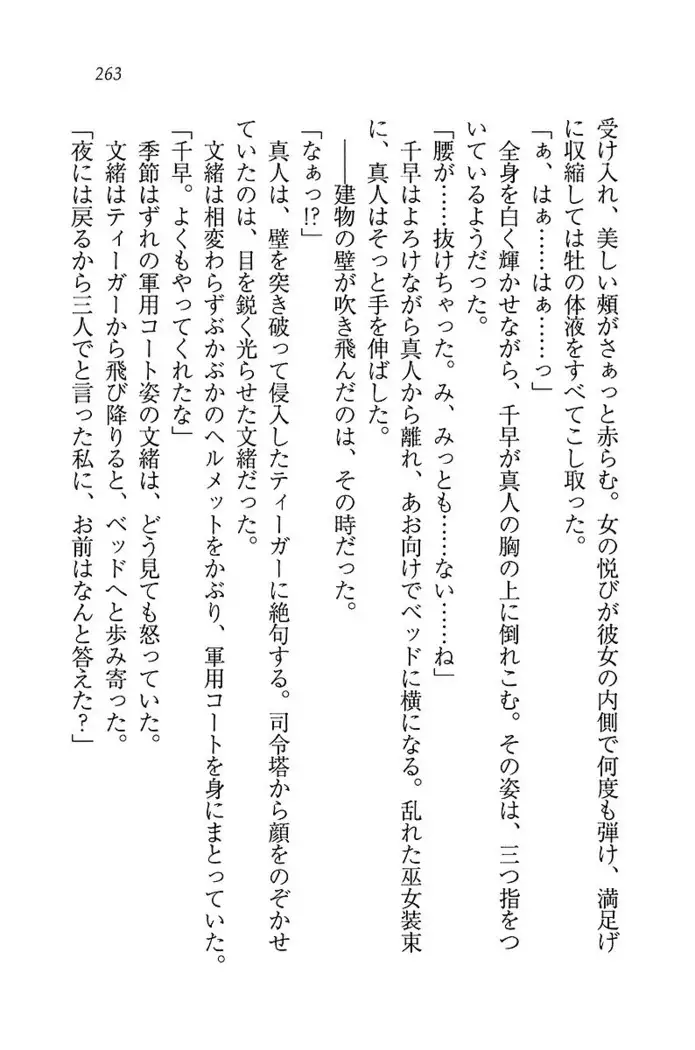 263
受け入れ、美しい頬がさぁっと赤らむ。女の悦びが彼女の内側で何度も弾け、満足げ
に収縮しては牡の体液をすべてこし取った。
「ぁ、はぁ……はぁ……っ」
全身を白く輝かせながら、千早が真人の胸の上に倒れこむ。その姿は、三つ指をつ
いているようだった。
「腰が……抜けちゃった。み、みっとも……ない……ね」
千早はよろけながら真人から離れ、あお向けでベッドに横になる。乱れた巫女装束
に、真人はそっと手を伸ばした。
――建物の壁が吹き飛んだのは、その時だった。
「なぁっ!?」
真人は、壁を突き破って侵入したティーガーに絶句する。司令塔から顔をのぞかせ
ていたのは、目を鋭く光らせた文緒だった。
文緒は相変わらずぶかぶかのヘルメットをかぶり、軍用コートを身にまとっていた。
「千早。よくもやってくれたな」
季節はずれの軍用コート姿の文緒は、どう見ても怒っていた。
文緒はティーガーから飛び降りると、ベッドへと歩み寄った。
「夜には戻るから三人でと言った私に、お前はなんと答えた？」